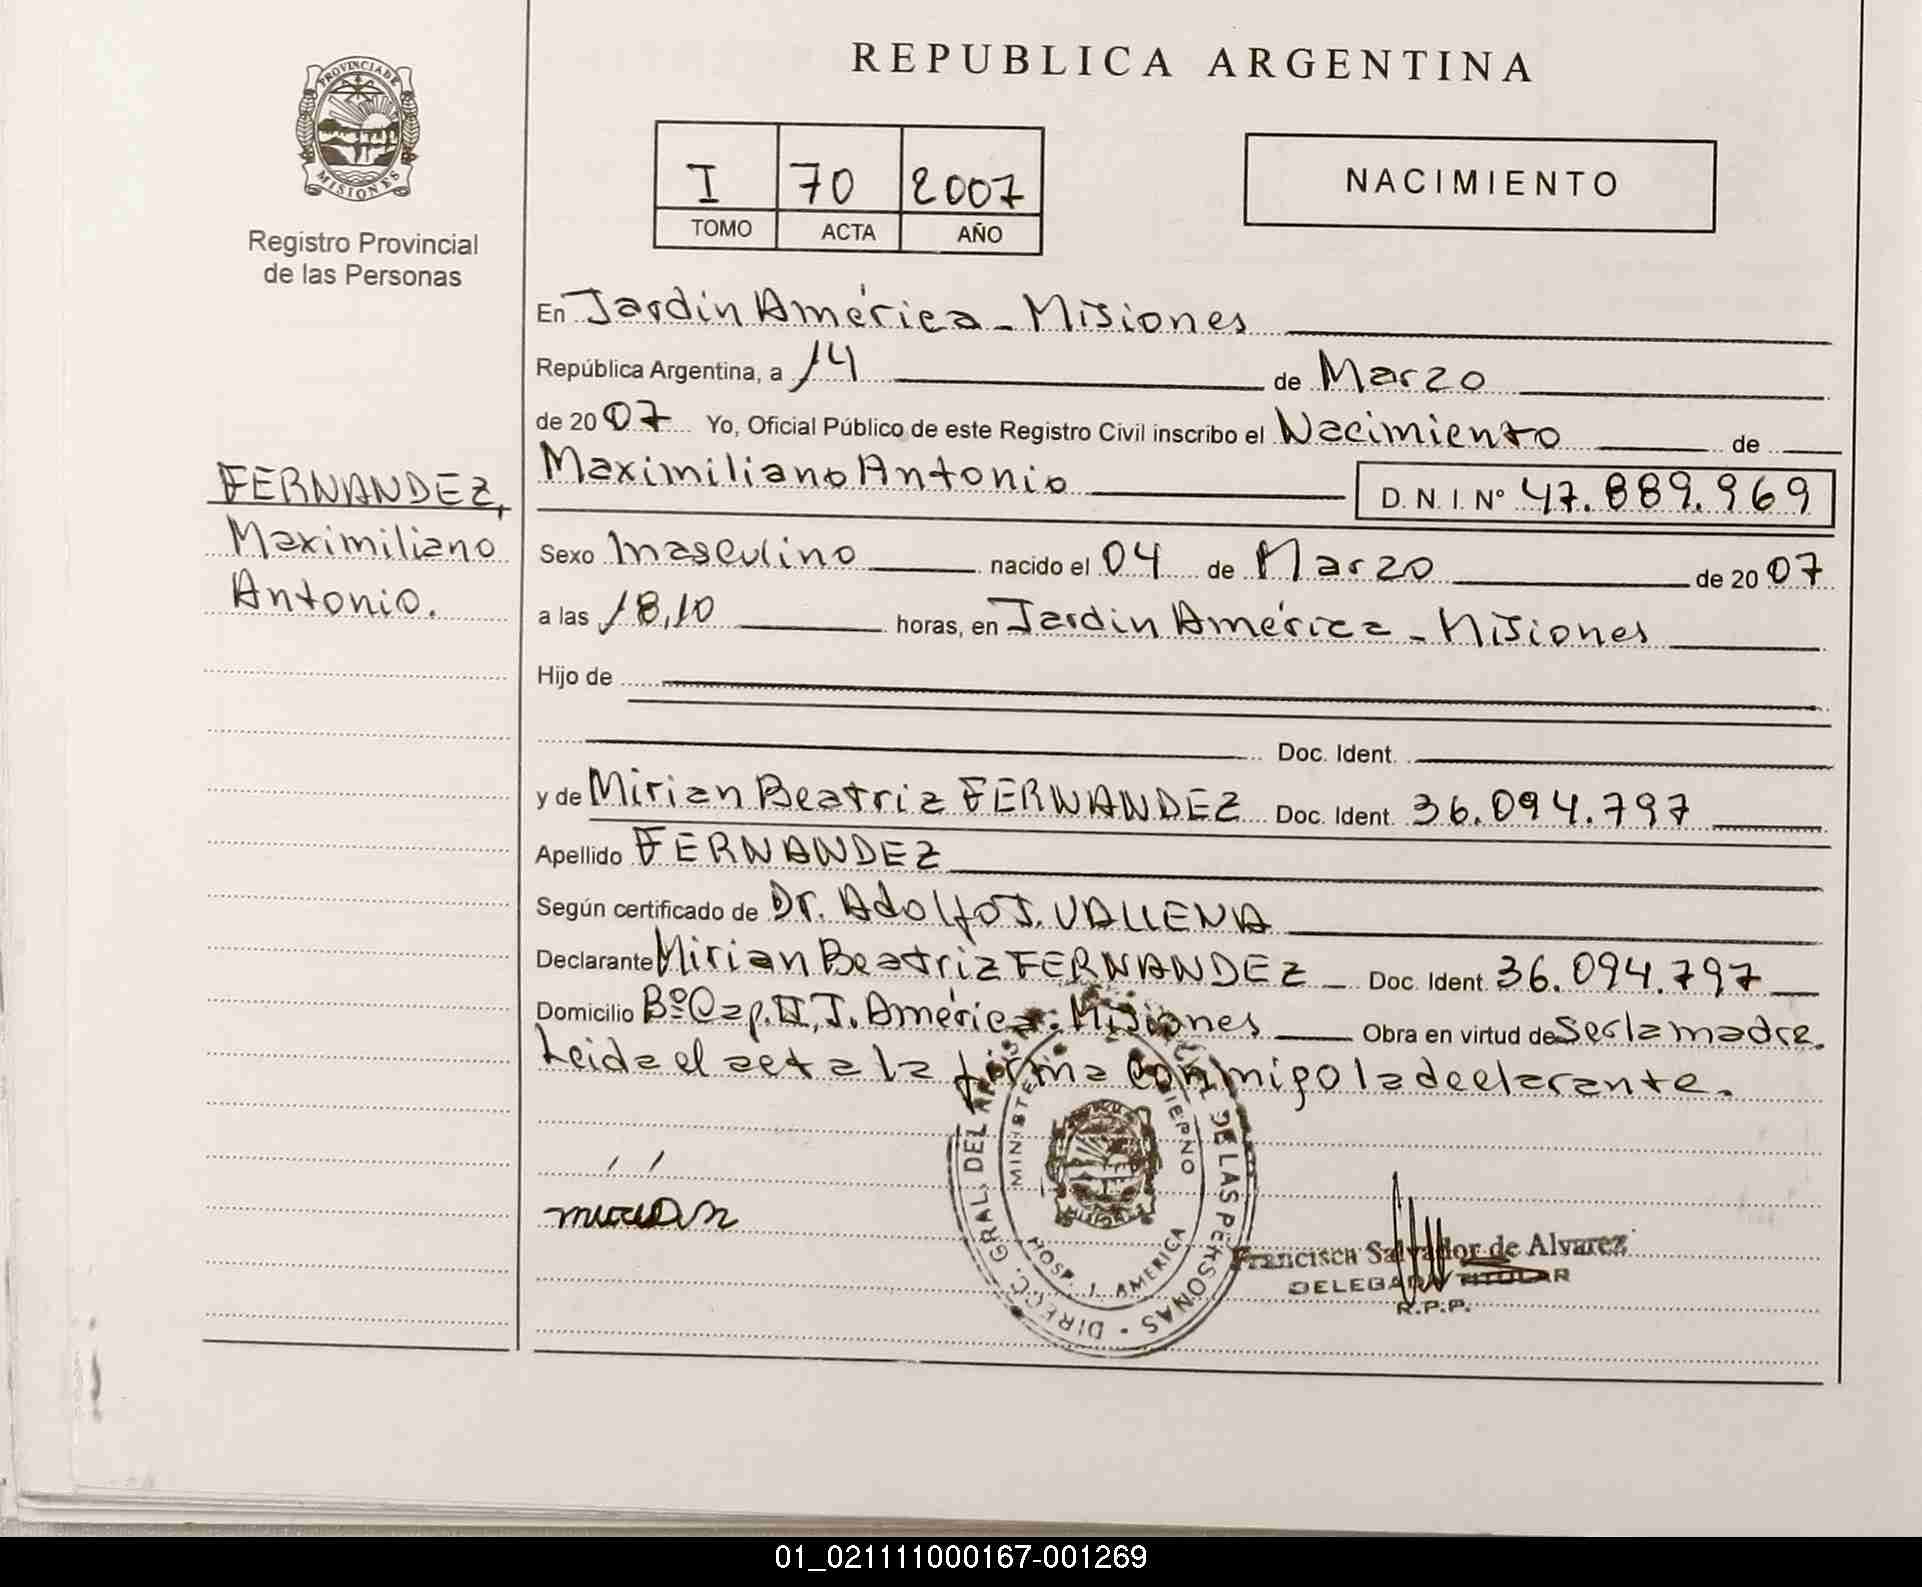 REPUBLICA ARGENTINA
PROVINCIA DE MISIONES
Registro Provincial
de las Personas
I 70 2007
TOMO ACTA AÑO
NACIMIENTO
En Jardín América - Misiones
República Argentina, a 14 de Marzo
de 2007 Yo, Oficial Público de este Registro Civil inscribo el Nacimiento de
Maximiliano Antonio D.N.I. Nº 47.889.969
FERNANDEZ,
Maximiliano
Antonio.
Sexo masculino nacido el 04 de Marzo de 2007
a las 18,10 horas, en Jardín América - Misiones
Hijo de
Doc. Ident.
y de Mirian Beatriz FERNANDEZ Doc. Ident. 36.094.797
Apellido FERNANDEZ
Según certificado de Dr. Adolfo J. VALLENA
Declarante Mirian Beatriz FERNANDEZ Doc. Ident. 36.094.797
Domicilio Bº Cap. II, J. América - Misiones Obra en virtud de Ser la madre.
Leida el acta la firma conmigo la declarante.
DIRECC. GRAL. DEL REGISTRO PROVINCIAL DE LAS PERSONAS
MINISTERIO DE GOBIERNO
HOSP. J. AMERICA
MISIONES
mirian
Francisca Salvador de Alvarez
DELEGADA TITULAR
R.P.P.
01_021111000167-001269